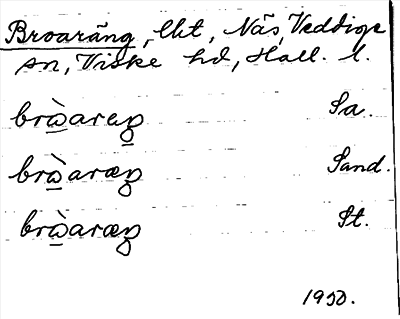 Broaräng, lht, Näs, Veddige
sn, Viske hd, Hall. l.
brὼareŋ Sa.
brὼaræŋ Sand.
brὼaræŋ St.
1950.